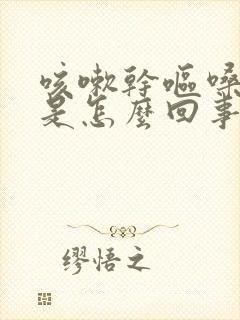 咳嗽幹嘔嗓
是怎麼回事
繆悟之